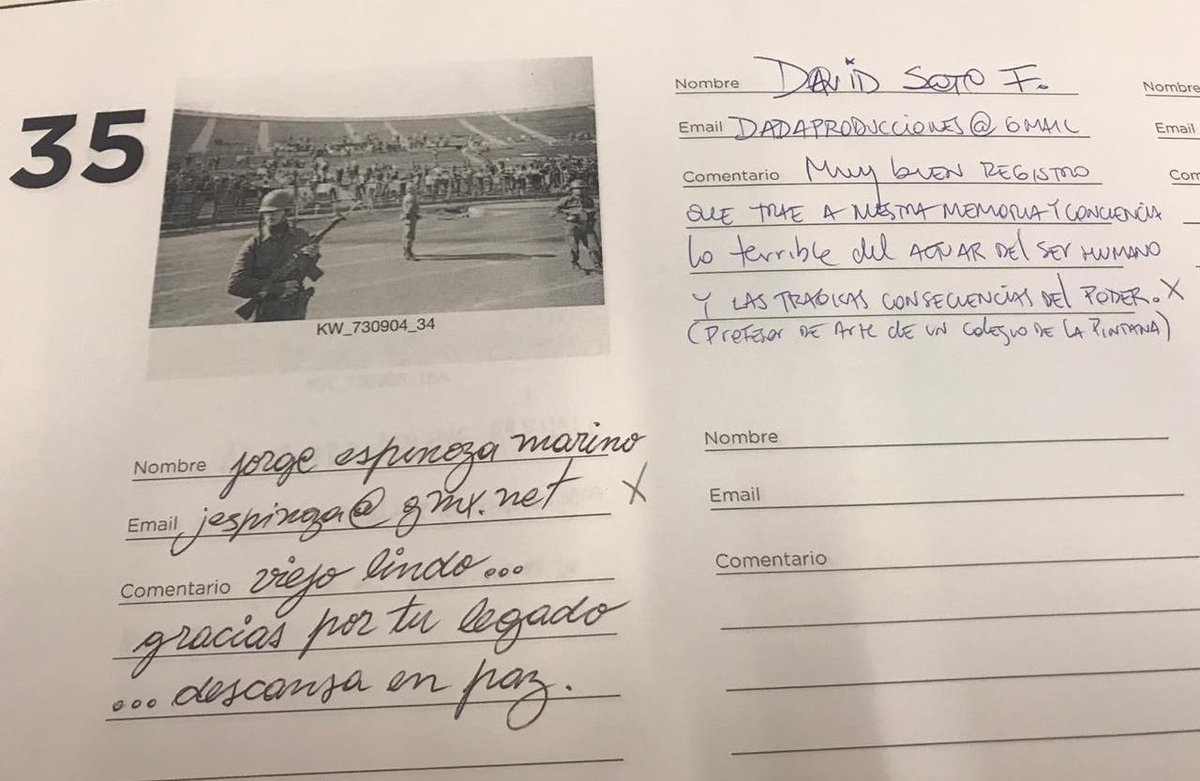 35
KW_730904_34
Nombre jorge espinoza marino
Email jespinoza@gmx.net X
Comentario viejo lindo...
gracias por tu legado
... descansa en paz.
Nombre DAVID SOTO F.
Email DADAPRODUCCIONES@GMAIL
Comentario Muy buen REGISTRO
QUE TRAE A NUESTRA MEMORIA Y CONCIENCIA
lo terrible del ACTUAR DEL SER HUMANO
Y LAS TRAGICAS CONSECUENCIAS DEL PODER. X
(Profesor DE Arte de un Colegio DE LA PINTANA)
Nombre
Email
Comentario
Nombre
Email
Com